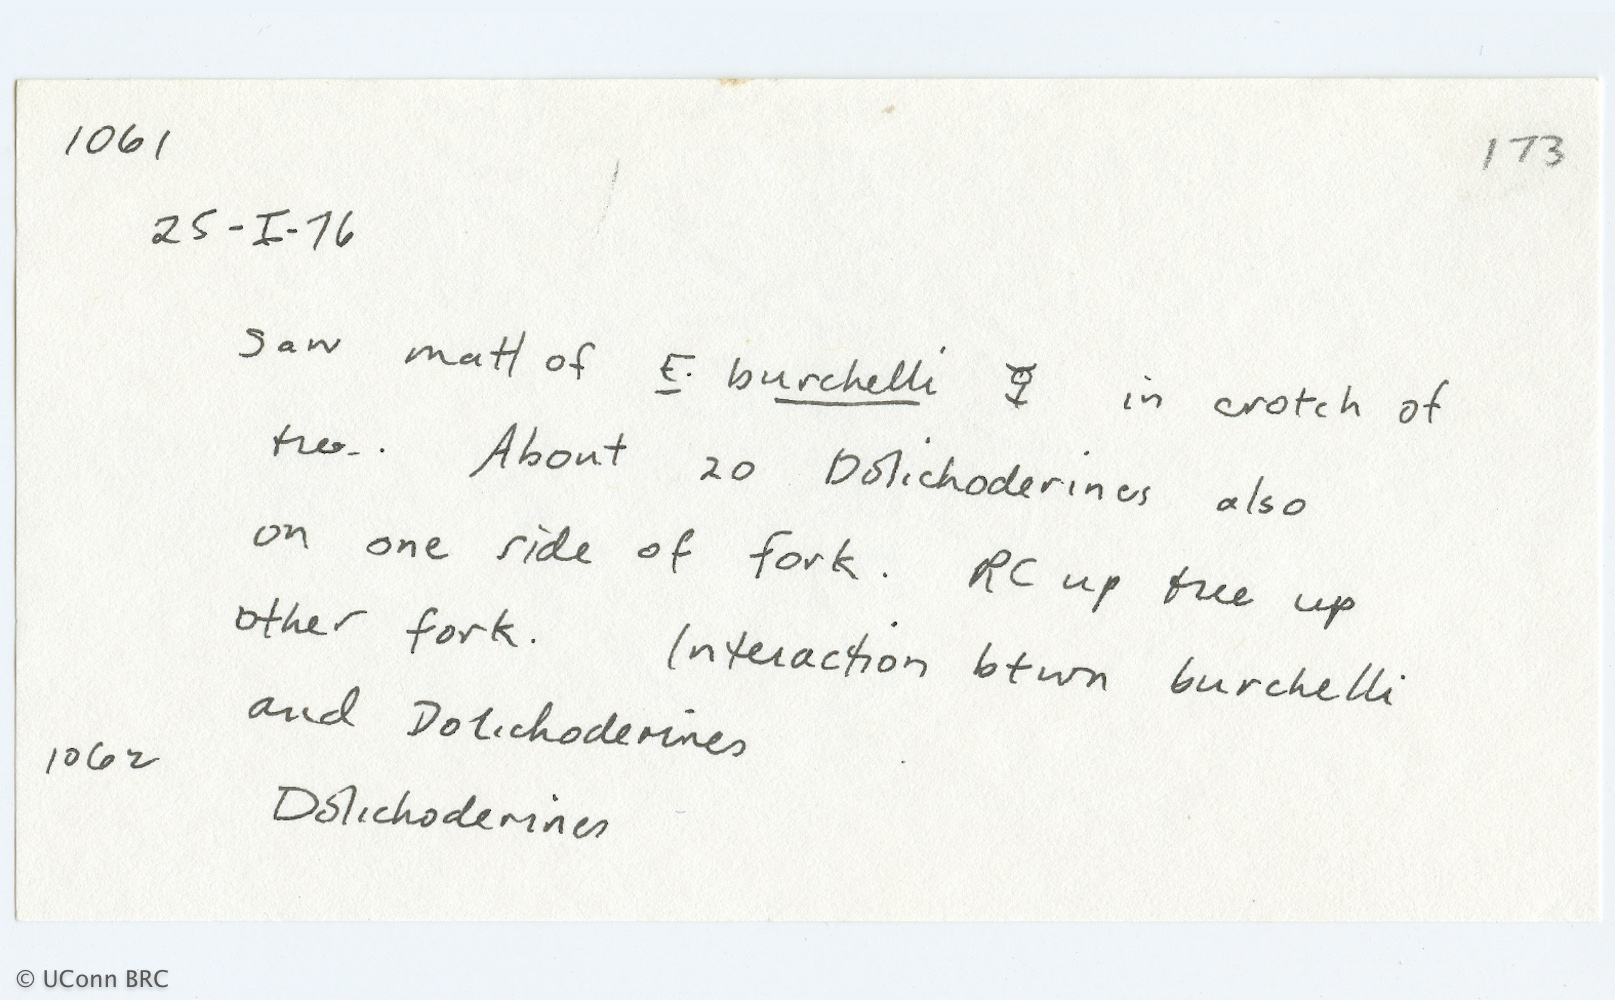 1061
173
25-I-76
Saw matt of E. burchelli ☿ in crotch of
tree. About 20 Dolichoderines also
on one side of fork. RC up tree up
other fork. Interaction btwn burchelli
and Dolichoderines
1062
Dolichoderines
© UConn BRC